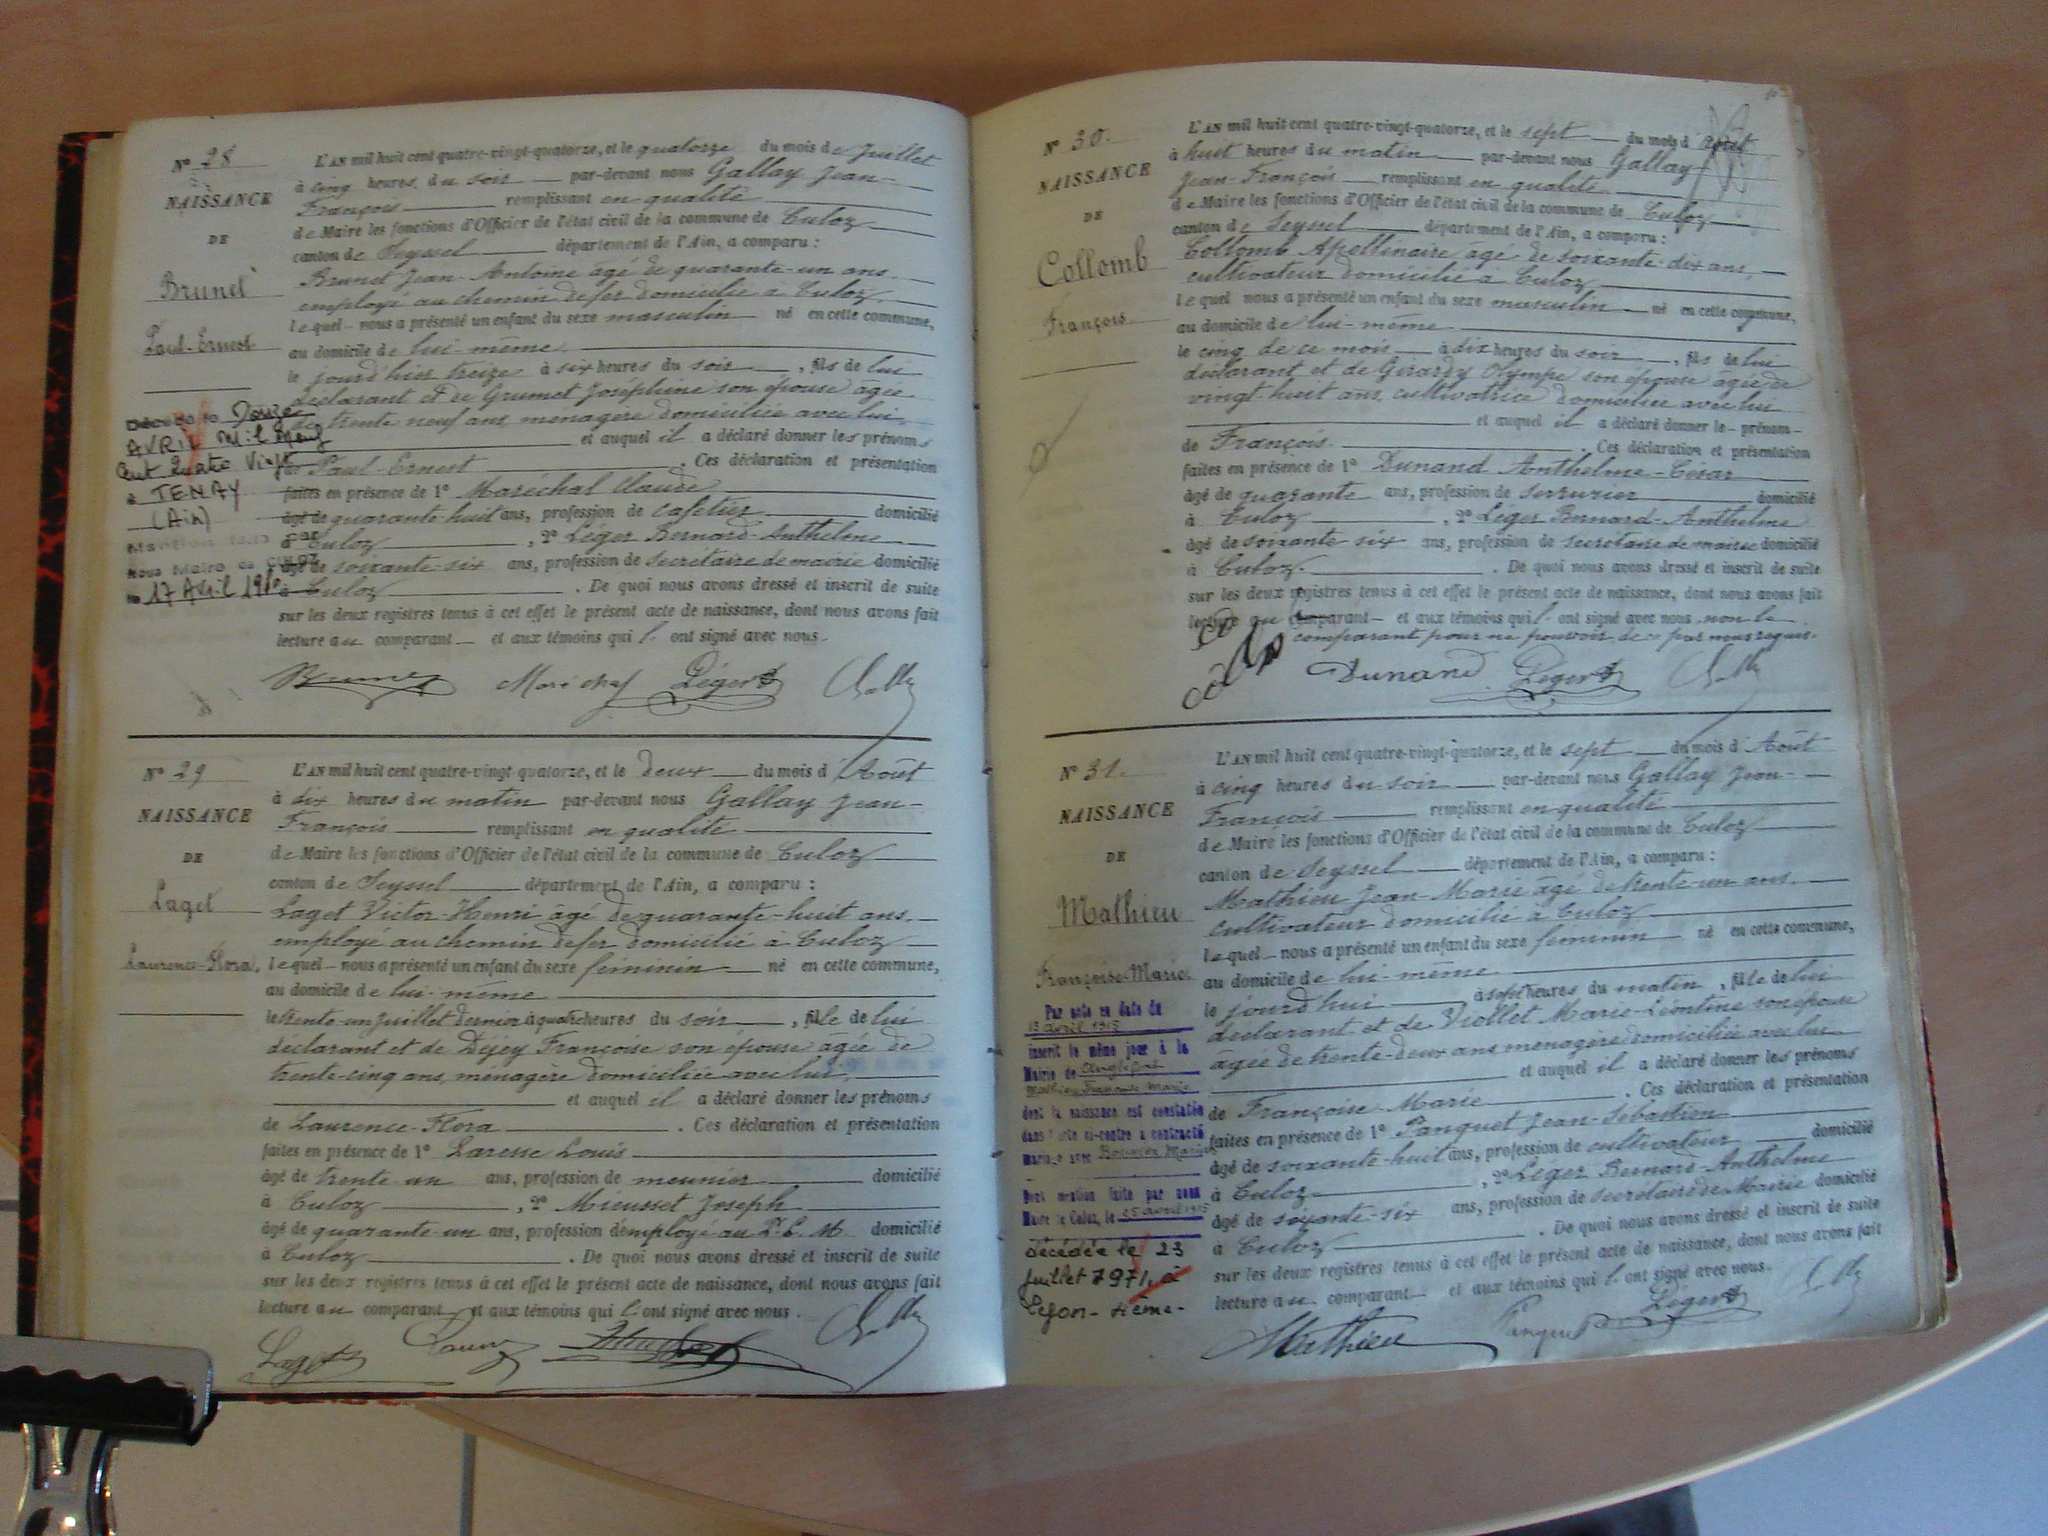 N° 28
NAISSANCE
DE
Brunet
Paul-Ernest
Décédé le Douze
AVRIL Mil Neuf
Cent Quatre Vingt
à TENAY
(Ain)
Mention faite par
Nous Maire de Culoz
le 17 Avril 1980
L'AN mil huit cent quatre-vingt-quatorze, et le quatorze du mois de Juillet
à cinq heures du soir par-devant nous Gallay Jean-
François remplissant en qualité
de Maire les fonctions d'Officier de l'état civil de la commune de Culoz
canton de Seyssel département de l'Ain, a comparu :
Brunet Jean-Antoine âgé de quarante-un ans,
employé au chemin de fer domicilié à Culoz
lequel nous a présenté un enfant du sexe masculin né en cette commune,
au domicile de lui-même
le jourd'hier treize à six heures du soir, fils de lui
déclarant et de Grumet Joséphine son épouse âgée
de trente neuf ans, ménagère domiciliée avec lui
et auquel il a déclaré donner les prénoms
de Paul-Ernest. Ces déclaration et présentation
faites en présence de 1° Maréchal Claude
âgé de quarante-huit ans, profession de cafetier domicilié
à Culoz, 2° Léger Bernard-Anthelme
âgé de soixante-six ans, profession de secrétaire de mairie domicilié
à Culoz. De quoi nous avons dressé et inscrit de suite
sur les deux registres tenus à cet effet le présent acte de naissance, dont nous avons fait
lecture au comparant et aux témoins qui l'ont signé avec nous.
Brunet Maréchal Léger Gallay
N° 29
NAISSANCE
DE
Laget
Laurence-Flora,
L'AN mil huit cent quatre-vingt-quatorze, et le deux du mois d'Août
à dix heures du matin par-devant nous Gallay Jean-
François remplissant en qualité
de Maire les fonctions d'Officier de l'état civil de la commune de Culoz
canton de Seyssel département de l'Ain, a comparu :
Laget Victor-Henri âgé de quarante-huit ans,
employé au chemin de fer domicilié à Culoz
lequel nous a présenté un enfant du sexe féminin né en cette commune,
au domicile de lui-même
le trente-un juillet dernier à quatre heures du soir, fille de lui
déclarant et de Déjey Françoise son épouse âgée de
trente-cinq ans, ménagère domiciliée avec lui
et auquel il a déclaré donner les prénoms
de Laurence-Flora. Ces déclaration et présentation
faites en présence de 1° Laresse Louis
âgé de trente-un ans, profession de meunier domicilié
à Culoz, 2° Mieusset Joseph
âgé de quarante-un ans, profession d'employé au P. L. M. domicilié
à Culoz. De quoi nous avons dressé et inscrit de suite
sur les deux registres tenus à cet effet le présent acte de naissance, dont nous avons fait
lecture au comparant et aux témoins qui l'ont signé avec nous.
Laget Gallay
N° 30.
NAISSANCE
DE
Collomb
François
L'AN mil huit cent quatre-vingt-quatorze, et le sept du mois d'août
à huit heures du matin par-devant nous Gallay
Jean-François remplissant en qualité
de Maire les fonctions d'Officier de l'état civil de la commune de Culoz
canton de Seyssel département de l'Ain, a comparu :
Collomb Apollinaire âgé de soixante-dix ans,
cultivateur domicilié à Culoz
lequel nous a présenté un enfant du sexe masculin né en cette commune,
au domicile de lui-même
le cinq de ce mois à dix heures du soir, fils de lui
déclarant et de Girardy Olympe son épouse âgée de
vingt-huit ans, cultivatrice domiciliée avec lui
et auquel il a déclaré donner le prénom
de François. Ces déclaration et présentation
faites en présence de 1° Dunand Anthelme-César
âgé de quarante ans, profession de serrurier domicilié
à Culoz, 2° Léger Bernard-Anthelme
âgé de soixante six ans, profession de secrétaire de mairie domicilié
à Culoz. De quoi nous avons dressé et inscrit de suite
sur les deux registres tenus à cet effet le présent acte de naissance, dont nous avons fait
lecture au comparant et aux témoins qui l'ont signé avec nous, non le
comparant pour ne pouvoir de ce par nous requis.
Dunand Léger Gallay
N° 31.
NAISSANCE
DE
Mathieu
Françoise-Marie
Par acte en date du
13 avril 1915
inscrit le même jour à la
Mairie de Anglefort
Mathieu Françoise Marie
dont la naissance est constatée
dans l'acte ci-contre a contracté
mariage avec
Dont mention faite par nous
Maire de Culoz, le 25 avril 1915
décédée le 23
juillet 1971, à
Lyon-4ème-
L'AN mil huit cent quatre-vingt-quatorze, et le sept du mois d'Août
à cinq heures du soir par-devant nous Gallay Jean-
François remplissant en qualité
de Maire les fonctions d'Officier de l'état civil de la commune de Culoz
canton de Seyssel département de l'Ain, a comparu :
Mathieu Jean Marie âgé de trente-un ans,
cultivateur domicilié à Culoz
lequel nous a présenté un enfant du sexe féminin né en cette commune,
au domicile de lui-même
le jourd'hui à sept heures du matin, fille de lui
déclarant et de Viollet Marie-Léontine son épouse
âgée de trente-deux ans ménagère domiciliée avec lui
et auquel il a déclaré donner les prénoms
de Françoise-Marie. Ces déclaration et présentation
faites en présence de 1° Panquet Jean-Sébastien
âgé de soixante-huit ans, profession de cultivateur domicilié
à Culoz, 2° Léger Bernard-Anthelme
âgé de soixante-six ans, profession de secrétaire de Mairie domicilié
à Culoz. De quoi nous avons dressé et inscrit de suite
sur les deux registres tenus à cet effet le présent acte de naissance, dont nous avons fait
lecture au comparant et aux témoins qui l'ont signé avec nous.
Mathieu Panquet Léger Gallay